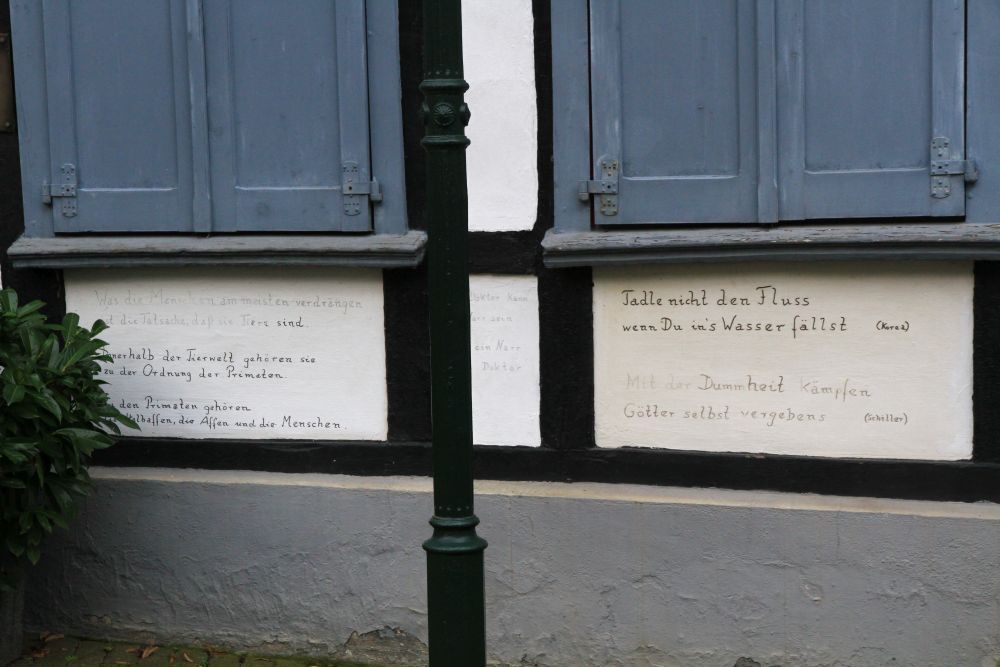 Was die Menschen am meisten verdrängen
ist die Tatsache, daß sie Tiere sind.
Innerhalb der Tierwelt gehören sie
zu der Ordnung der Primaten.
den Primaten gehören
die Affen und die Menschen.
Doktor kann
Narr sein
ein Narr
Doktor
Tadle nicht den Fluss
wenn Du in's Wasser fällst (Korea)
Mit der Dummheit kämpfen
Götter selbst vergebens (Schiller)